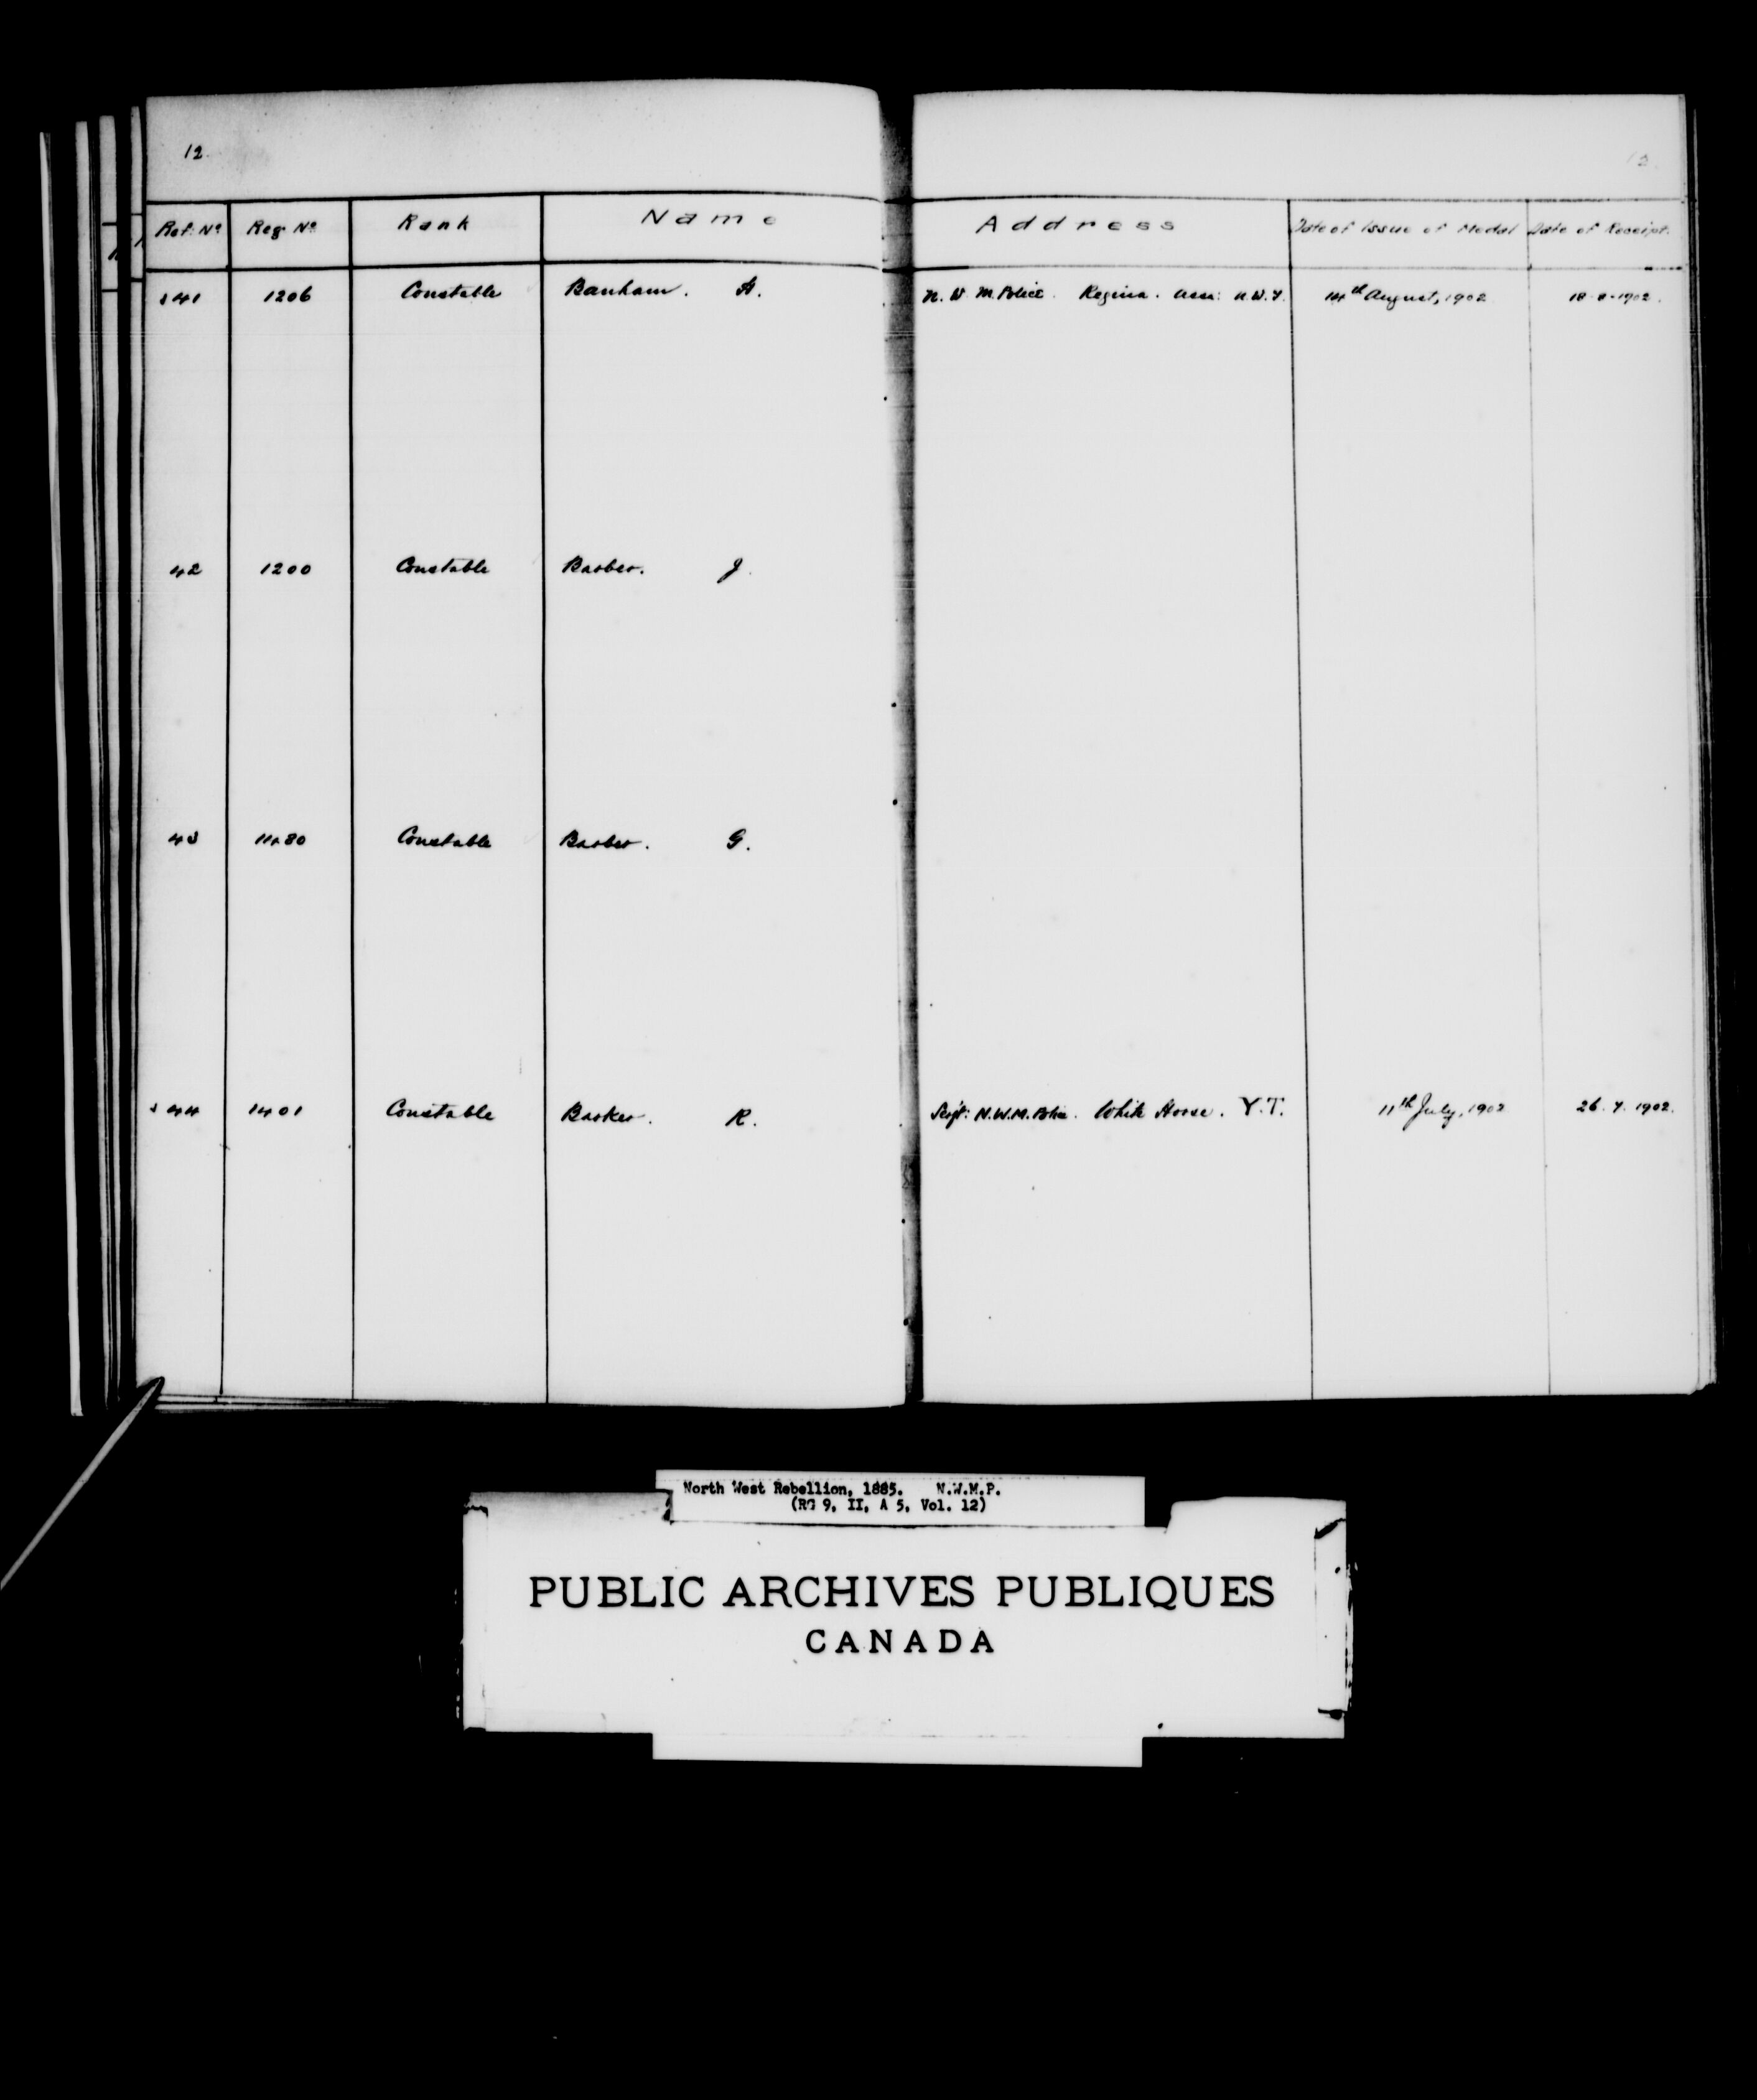 12.
12.
Ref. Nº Reg Nº Rank Name Address Date of Issue of Medal Date of Receipt.
41 1206 Constable Banham. N. W. M. Police. Regina. Assa: N.W.T. 14th August, 1902 18-8-1902.
42 1200 Constable Barber. J.
43 1180 Constable Barber. G.
44 1401 Constable Barker. R. Sergt: N.W.M. Police. White Horse. Y.T. 11th July, 1902 26. 7. 1902.
North West Rebellion, 1885. N.W.M.P.
(RG 9, II, A 5, Vol. 12)
PUBLIC ARCHIVES PUBLIQUES
CANADA